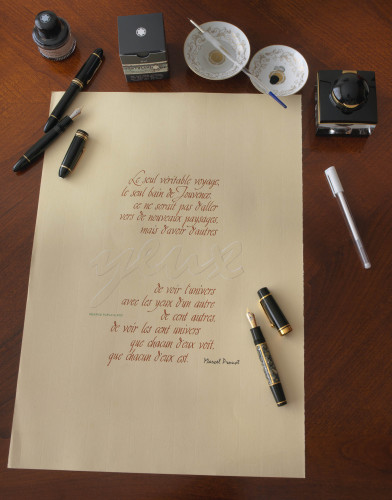 Le seul véritable voyage,
le seul bain de Jouvence,
ce ne serait pas d'aller
vers de nouveaux paysages,
mais d'avoir d'autres
yeux
de voir l'univers
avec les yeux d'un autre
de cent autres,
de voir les cent univers
que chacun d'eux voit,
que chacun d'eux est.
Marcel Proust